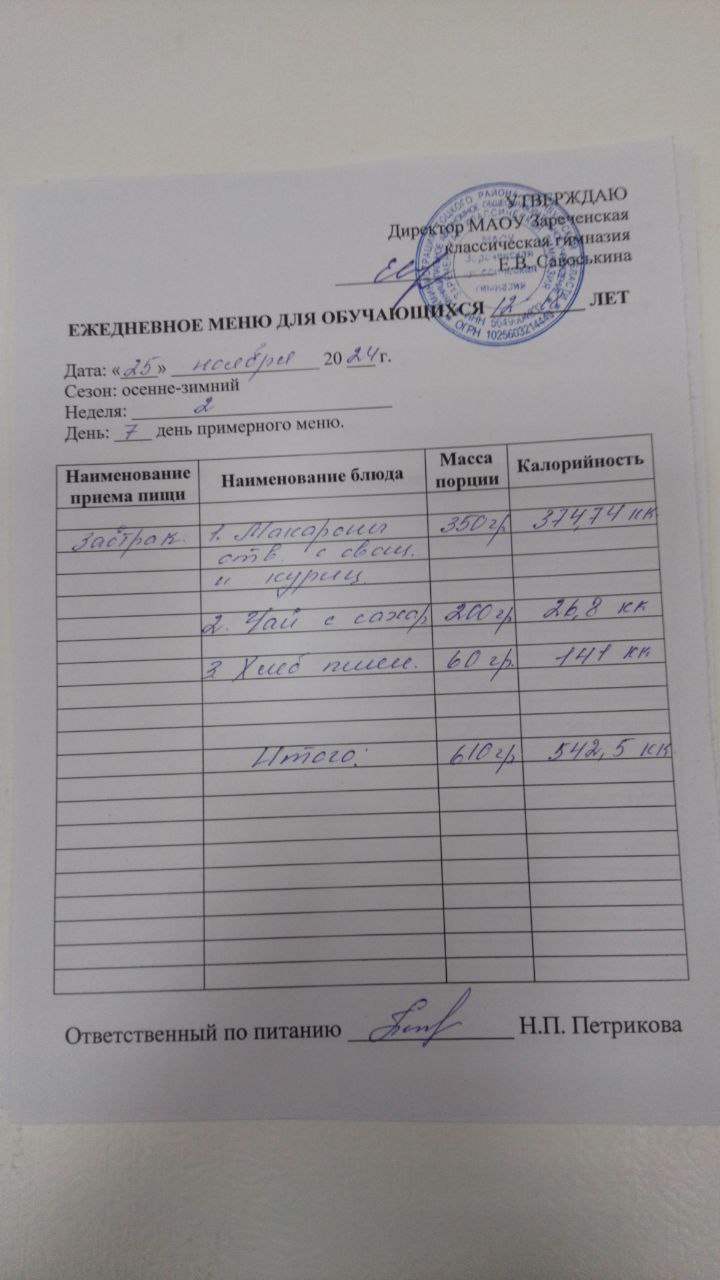 УТВЕРЖДАЮ
Директор МАОУ Зареченская
классическая гимназия
Е.В. Савоськина
ЕЖЕДНЕВНОЕ МЕНЮ ДЛЯ ОБУЧАЮЩИХСЯ 12-18 ЛЕТ
Дата: «25» ноября 2024 г.
Сезон: осенне-зимний
Неделя: 2
День: 7 день примерного меню.
Наименование приема пищи Наименование блюда Масса порции Калорийность
Завтрак. 1. Макароны 350гр 374,74 кк
отв. с овощ.
и куриц.
2. Чай с сахар 200гр 26,8 кк
3 Хлеб пшен. 60 гр 141 кк
Итого: 610гр 542,5 кк
Ответственный по питанию Н.П. Петрикова